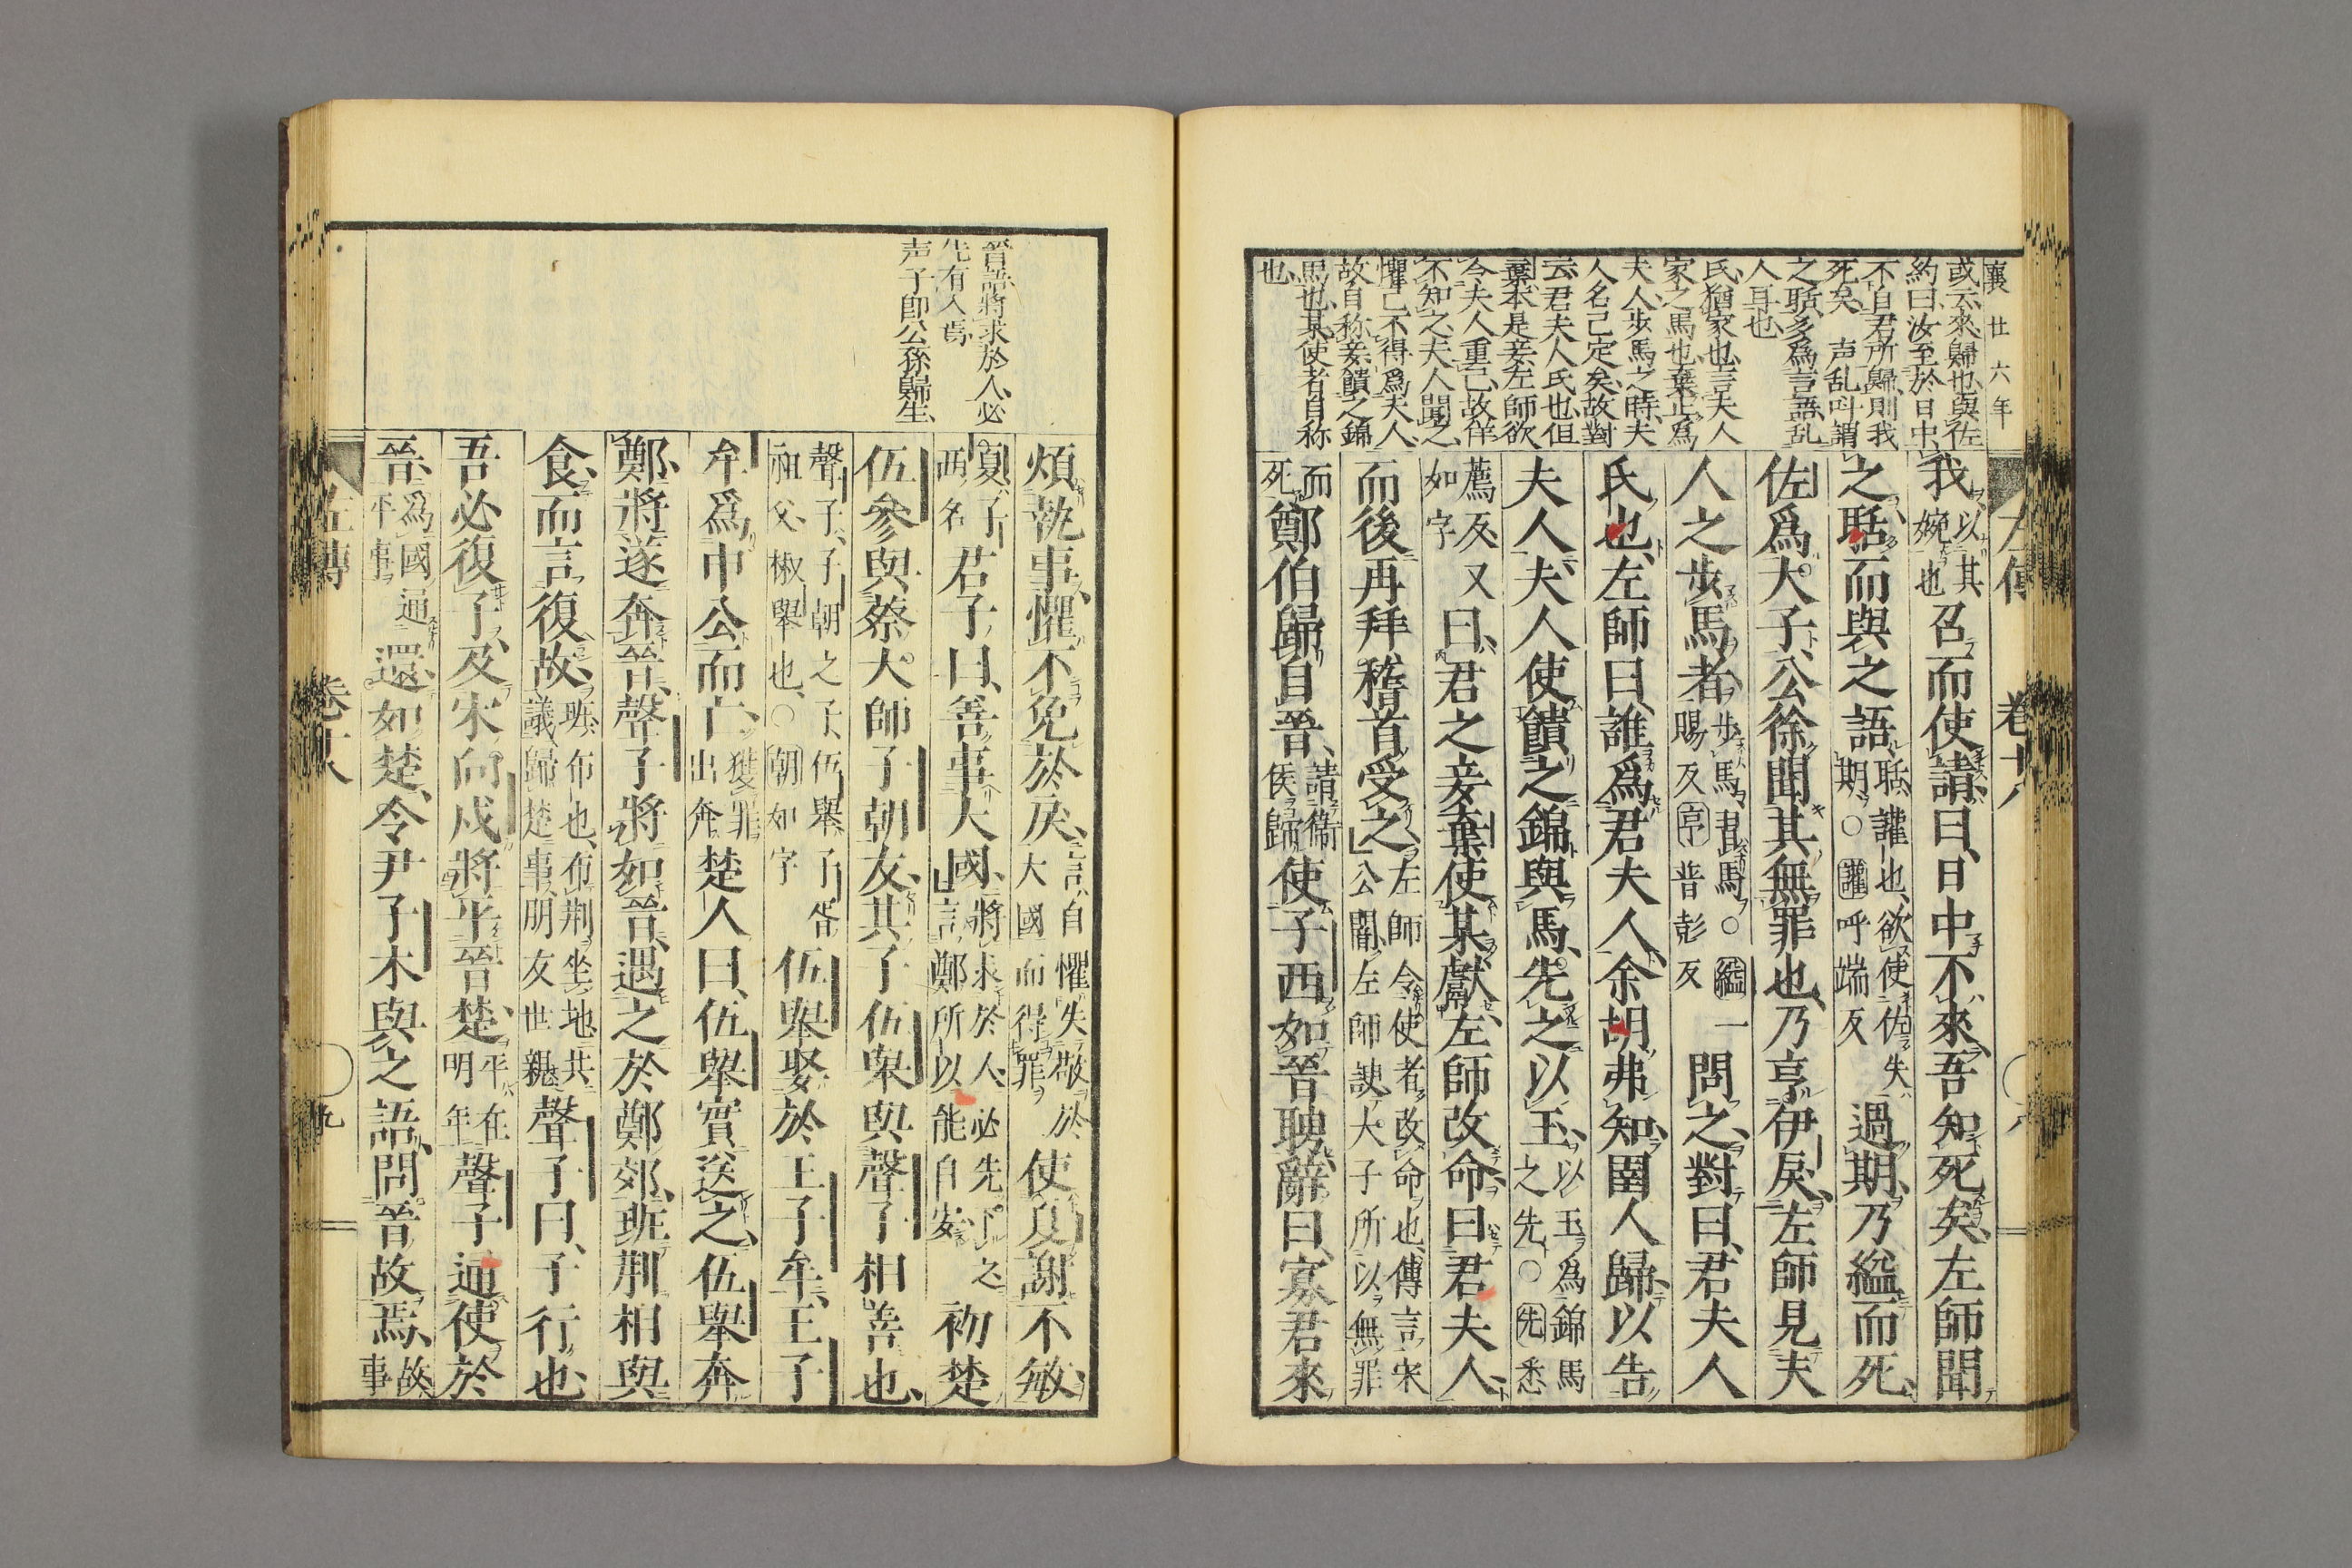 襄廿六年
或云來歸也與佐
約曰汝至於日中
不自君所歸則我
死矣　声乱呌謂
之聒多爲言語乱
人耳也
氏猶家也言夫人
家之馬也棄止爲
夫人步馬之時夫
人名己定矣故對
云君夫人氏也但
棄本是妾左師欲
令夫人重己故佯
不知之夫人聞之
懼己不得爲夫人
故自称妾饋之錦
馬也某使者自称
也
我以其婉也召而使請曰日中不來吾知死矣左師聞
之聒而與之語聒讙也欲使佐失期○讙呼端反過期乃縊而死
佐爲大子公徐聞其無罪也乃亨伊戾左師見夫
人之步馬者步馬習馬○縊一賜反亨普彭反問之對曰君夫人
氏也左師曰誰爲君夫人余胡弗知圉人歸以告
夫人夫人使饋之錦與馬先之以玉以玉爲錦馬之先○先悉
薦反又如字曰君之妾棄使某獻左師改命曰君夫人
而後再拜稽首受之左師令使者改命也傳言宋公闇左師諛大子所以無罪
而死鄭伯歸自晉請衞侯歸使子西如晉聘辭曰寡君來
左傳　卷十八
晉語將求於人必
先有入焉
声子即公孫歸生
煩執事懼不免於戾言自懼失敬於大國而得罪使夏謝不敏
夏子西名君子曰善事大國將求於人必先下之言鄭所以能自安初楚
伍參與蔡大師子朝友其子伍舉與聲子相善也
聲子子朝之子伍舉子胥祖父椒舉也○朝如字伍舉娶於王子牟王子
牟爲申公而亡獲罪出奔楚人曰伍舉實送之伍舉奔
鄭將遂奔晉聲子將如晉遇之於鄭郊班荆相與
食而言復故班布也布荆坐地共議歸楚事朋友世親聲子曰子行也
吾必復子及宋向戌將平晉楚平在明年聲子通使於
晉爲國通平事還如楚令尹子木與之語問晉故焉故事
左傳　卷十八　九